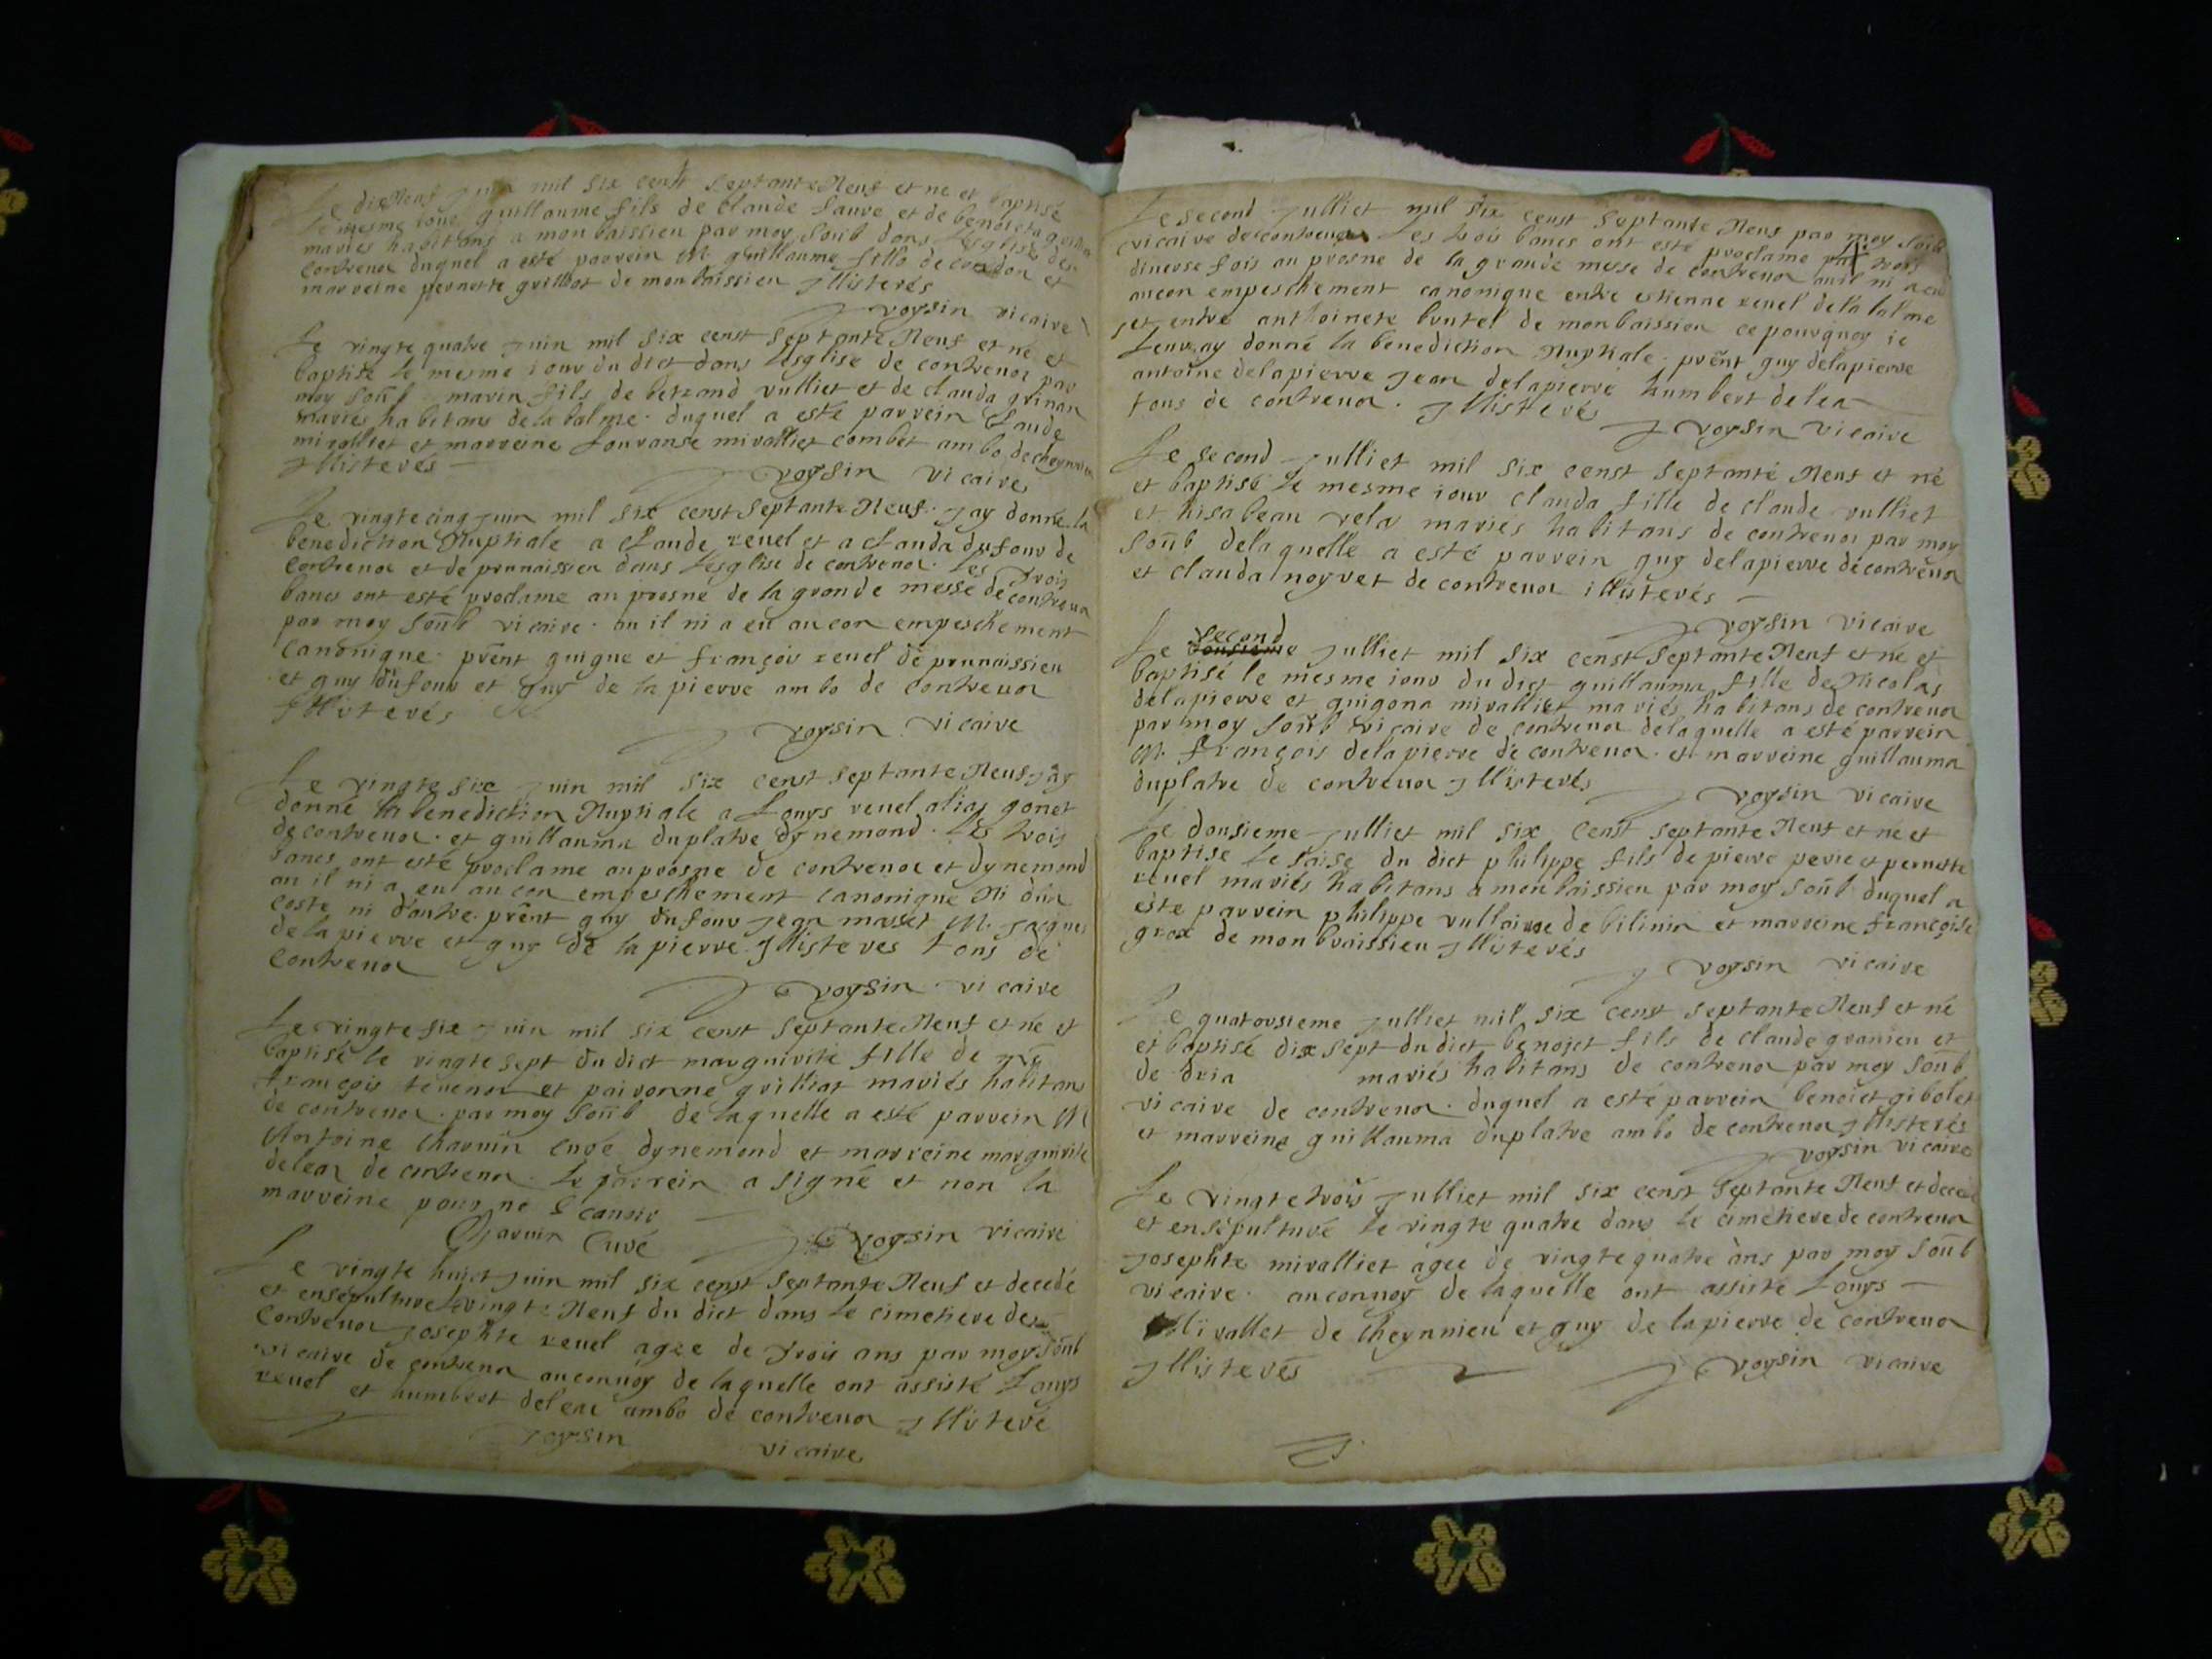 Le dixNeuf Juin mil six censt septante Neuf et ne et baptisé
Le mesme iour guillaume fils de claude fauve et de benoieta
mariés habitans a monbaissieu par moy soub dans Lesglise de
contrenoz duquel a esté parrein M. guillaume fills de cordon et
marreine pernette grilliot de monbaissieu Jllisterés
J voysin vicaire
Le vingte quatre Juin mil six censt septante Neuf et né et
baptisé le mesme iour du dict dans Lesglise de contrenoz par
moy soub marin fils de betrand vulliet et de clauda grinan
mariés habitans de la balme. duquel a esté parrein Claude
miralliet et marreine Louranse miralliet combet ambo de
Jllisterés
J voysin vicaire
Le vingte cinq Juin mil six censt septante Neuf. Jay donné la
benediction Nuptiale a claude revel et a clauda dufour de
contrenoz et de prunaissieu dans Lesglise de contrenoz. Les trois
bancs ont esté proclame au prosne de la grande messe de contrenoz
par moy soub vicaire. ou il ni a eu aucon empeschement
canonique. prent guigue et françois revel de prunaissieu
et guy dufour et guy de la pierre ambo de contrenoz
Jllisterés
J voysin vicaire
Le vingte six Juin mil six censt septante Neuf Jay
donné la benediction Nuptiale a Louys revel alias gonet
de contrenoz. et guillauma duplatre dynemond. Les trois
bancs ont esté proclame au prosne de contrenoz et dynemond
ou il ni a eu aucon empeschement canonique Ni dun
coste ni dautre. prent guy dufour Jean masset M. Jaques
de la pierre et guy de la pierre. Jllisteres tous de
contrenoz
J voysin vicaire
Le vingte six Juin mil six censt septante Neuf et né et
baptisé le vingte sept du dict marguirite fille de
françois tevenoz et paironne grilliat mariés habitans
de contrenoz. par moy soub de laquelle a esté parrein M
Antoine Charvin Curé dynemond et marreine marguirite
deleaz de contrenoz. Le parrein a signé et non la
marreine pour ne scavoir
Charvin Curé J voysin vicaire
Le vingte huict Juin mil six censt septante Neuf et decedé
et ensepulturé le vingte Neuf du dict dans le cimetiere de
contrenoz Josephte revel agee de trois ans par moy soub
vicaire de contrenoz au convoy de laquelle ont assisté Louys
revel et humbert deleaz ambo de contrenoz Jllisteré
J voysin vicaire
Le second Julliet mil six censt septante Neuf par moy soub
vicaire de contrenoz Les trois bancs ont esté proclame par trois
diverse fois au prosne de la grande messe de contrenoz ou il ni a eu
aucon empeschement canonique entre estienne revel de la balme
et entre anthoinete brutel de monbaissieu ce pourquoy ie
Leur ay donné la benediction Nuptiale. prent guy delapierre
antoine delapierre Jean delapierre humbert deleaz
tous de contrenoz. Jllisterés
J voysin vicaire
Le second Julliet mil six censt septante Neuf et né
et baptisé le mesme iour clauda fille de claude vulliet
et hisabeau velaz mariés habitans de contrenoz par moy
soub delaquelle a esté parrein guy delapierre de contrenoz
et clauda noyret de contrenoz illisterés
J voysin vicaire
second
Le Julliet mil six censt septante Neuf et né et
baptisé le mesme iour du dict guillauma fille de Nicolas
delapierre et guigona miralliet mariés habitans de contrenoz
par moy soub vicaire de contrenoz delaquelle a esté parrein
M. françois delapierre de contrenoz. et marreine guillauma
duplatre de contrenoz Jllisterés
J voysin vicaire
Le dousieme Julliet mil six censt septante Neuf et né et
baptisé le saise du dict philippe fils de pierre perie et pernette
revel mariés habitans a monbaissieu par moy soub duquel a
este parrein philippe de bilinin et marreine françoise
groz de monbraissieu Jllisterés
J voysin vicaire
Le quatorsieme Julliet mil six censt septante Neuf et né
et baptisé dix sept du dict benoiet fils de claude granieu et
de dria mariés habitans de contrenoz par moy soub
vicaire de contrenoz. duquel a esté parrein benoiet gibolet
et marreine guillauma duplatre ambo de contrenoz Jllisterés
J voysin vicaire
Le vingte trois Julliet mil six censt septante Neuf et decedé
et ensepulturé le vingte quatre dans le cimetiere de contrenoz
Josephte miralliet agee de vingte quatre ans par moy soub
vicaire. au convoy de laquelle ont assisté Louys
Mirallet de cheynnieu et guy de lapierre de contrenoz
Jllisterés J voysin vicaire